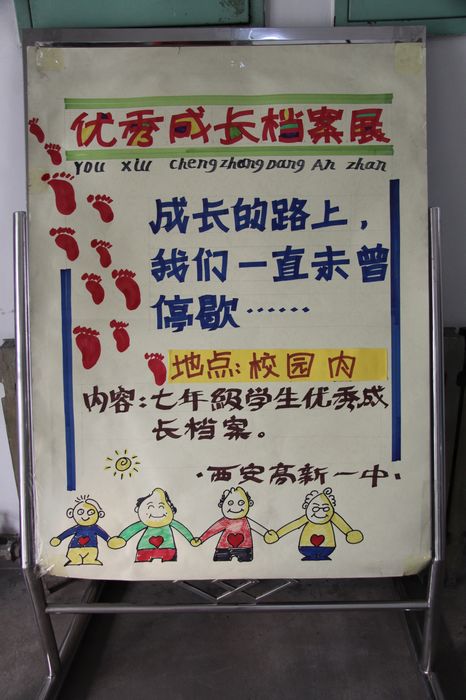 优秀成长档案展
YOU XIU ChengZhang Dang An zhan
成长的路上，
我们一直未曾
停歇……
地点:校园内
内容:七年级学生优秀成
长档案。
·西安高新一中·